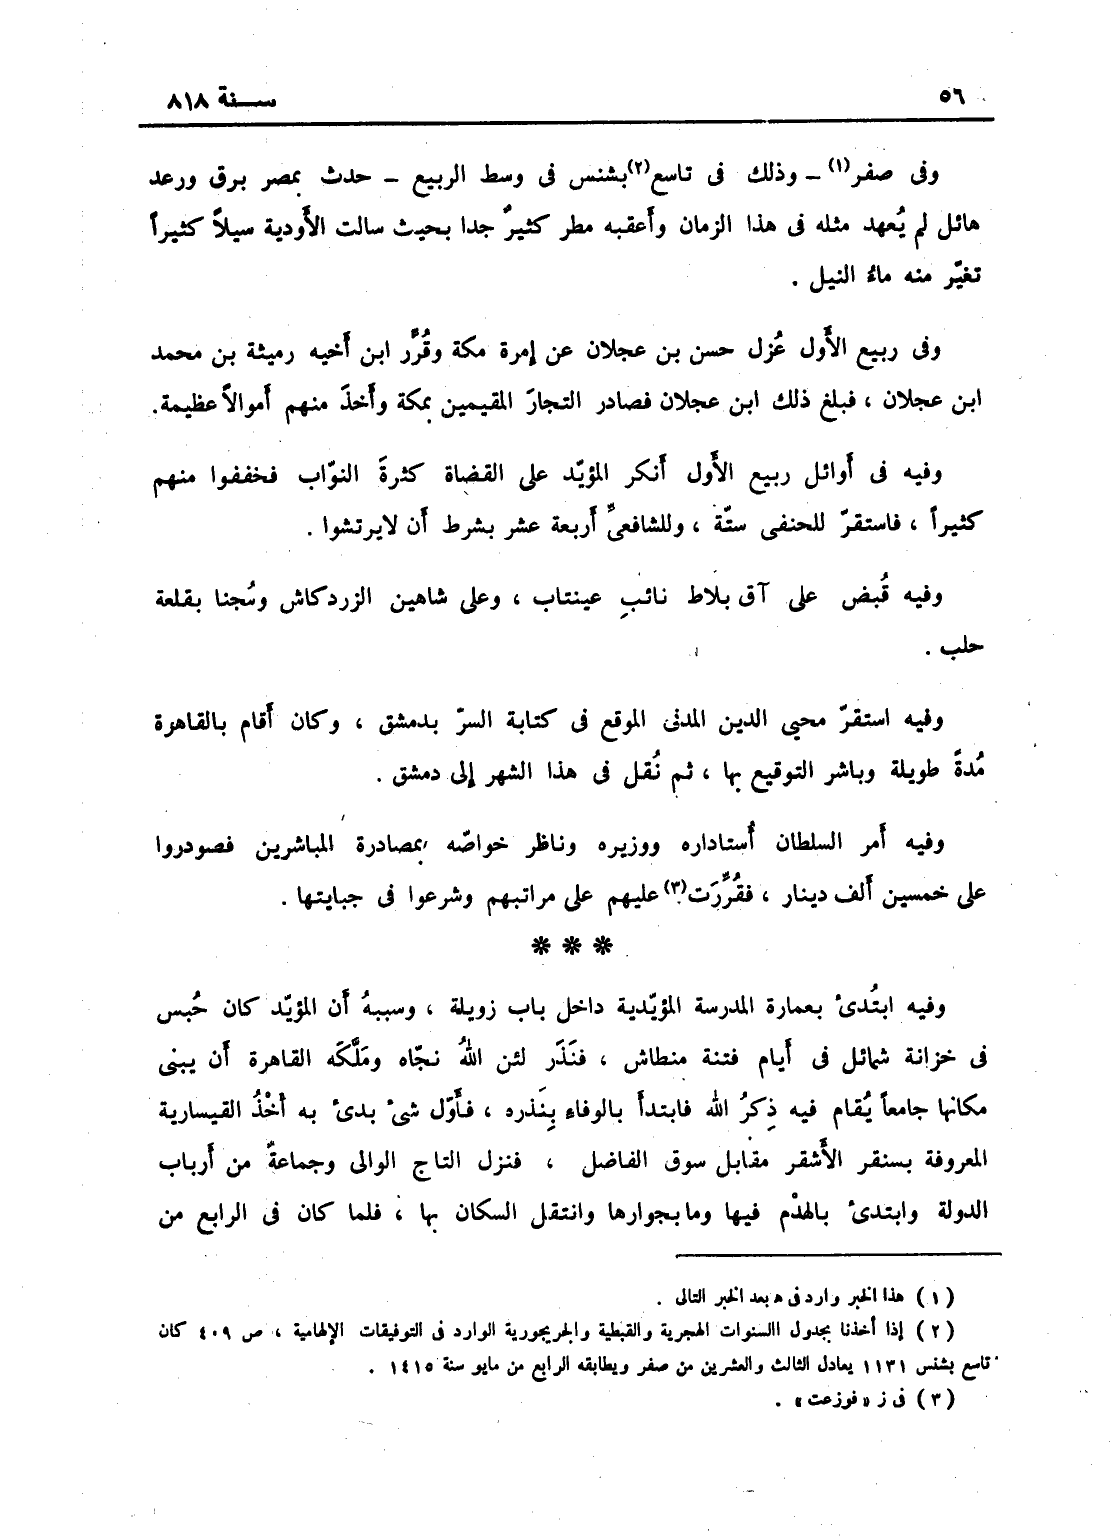 ٥٦ سـنة ٨١٨
وفى صفر(١) ـ وذلك فى تاسع(٢) بشنس فى وسط الربيع ـ حدث بمصر برق ورعد
هائل لم يُعهد مثله فى هذا الزمان وأَعقبه مطر كثيرٌ جدا بحيث سالت الأَودية سيلاً كثيراً
تغيّر منه ماءُ النيل .
وفى ربيع الأَول عُزل حسن بن عجلان عن إمرة مكة وقُرِّر ابن أَخيه رميثة بن محمد
ابن عجلان ، فبلغ ذلك ابن عجلان فصادر التجارَ المقيمين بمكة وأَخذَ منهم أَموالاً عظيمة.
وفيه فى أَوائل ربيع الأَول أَنكر المؤيّد على القضاة كثرةَ النوّاب فخففوا منهم
كثيراً ، فاستقرّ للحنفى ستّة ، وللشافعىِّ أَربعة عشر بشرط أَن لايرتشوا .
وفيه قُبض على آق بلاط نائبِ عينتاب ، وعلى شاهين الزردكاش وسُجنا بقلعة
حلب .
وفيه استقرّ محيى الدين المدنى الموقع فى كتابة السرّ بدمشق ، وكان أَقام بالقاهرة
مُدةً طويلة وباشر التوقيع بها ، ثم نُقل فى هذا الشهر إلى دمشق .
وفيه أَمر السلطان أُستاداره ووزيره وناظر خواصّه بمصادرة المباشرين فصودروا
على خمسين أَلف دينار ، فقُرِّرَت(٣) عليهم على مراتبهم وشرعوا فى جبايتها .
❋ ❋ ❋
وفيه ابتُدئَ بعمارة المدرسة المؤيّدية داخل باب زويلة ، وسببهُ أَن المؤيّد كان حُبس
فى خزانة شمائل فى أَيام فتنة منطاش ، فنَذَر لئن اللهُ نجّاه ومَلَّكَه القاهرة أَن يبنى
مكانها جامعاً يُقام فيه ذِكرُ الله فابتدأَ بالوفاءِ بِنَذره ، فأَوّل شئ بدئ به أَخْذُ القيسارية
المعروفة بسنقر الأَشقر مقابل سوق الفاضل ، فنزل التاج الوالى وجماعةٌ من أَرباب
الدولة وابتدئ بالهدْم فيها وما بجوارها وانتقل السكان بها ، فلما كان فى الرابع من
(١) هذا الخبر وارد فى ه بعد الخبر التالى .
(٢) إذا أخذنا بجدول االسنوات الهجرية والقبطية والجريجورية الوارد فى التوفيقات الإلهامية ، ص ٤٠٩ كان
تاسع بشنس ١١٣١ يعادل الثالث والعشرين من صفر ويطابقه الرابع من مايو سنة ١٤١٥ .
(٣) فى ز « فوزعت » .